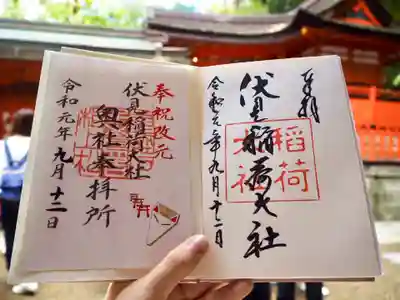 奉拝
伏見稲荷大社
稲荷
大社
令和元年九月十二日
奉祝改元
伏見稲荷大社
奥社奉拝所
令和元年九月十二日